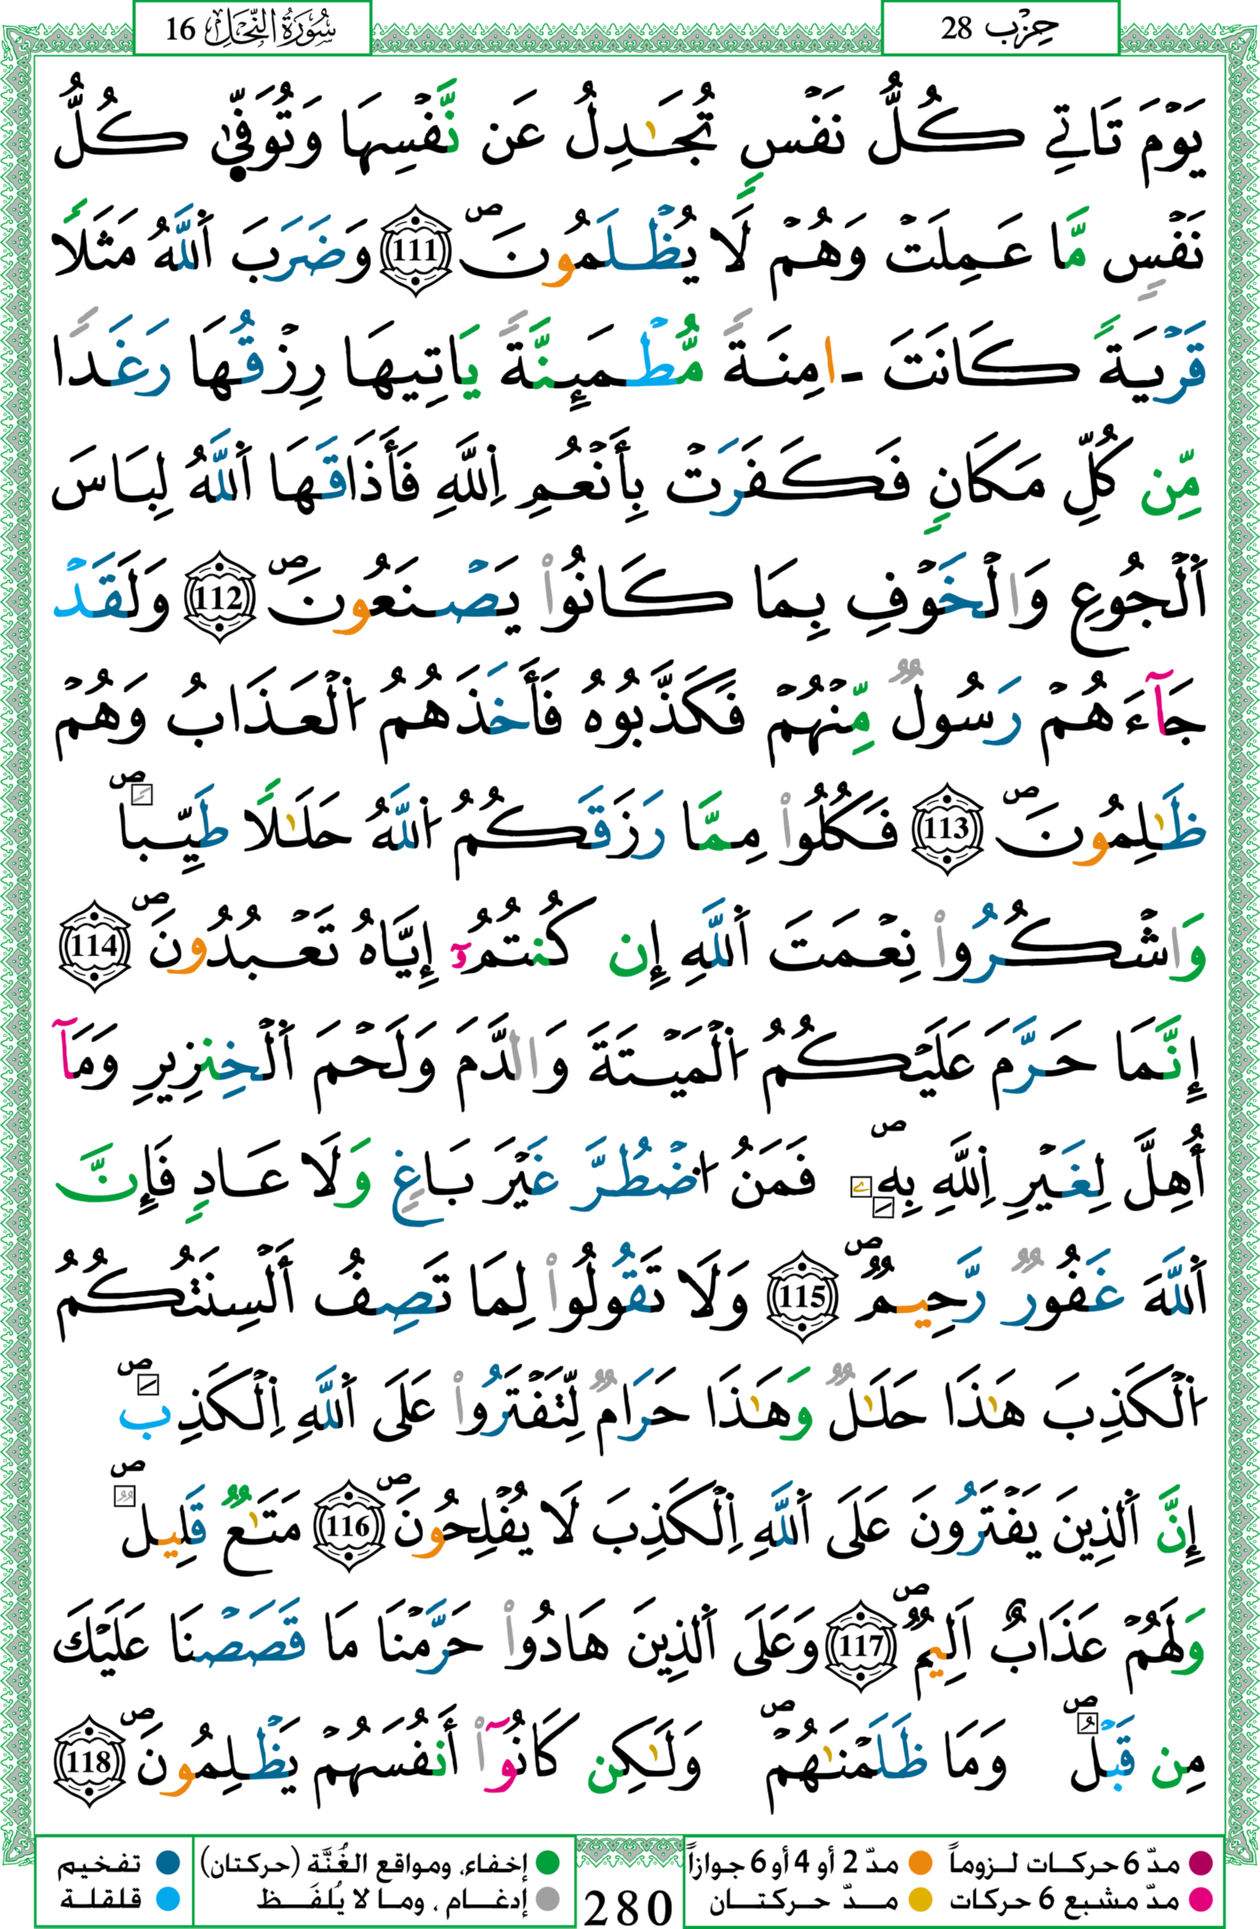 سُورَةُ النَّحْلِ 16
حِزْب 28
يَوْمَ تَاتِے كُلُّ نَفْسٖ تُجَٰدِلُ عَن نَّفْسِهَا وَتُوَفّ۪يٰ كُلُّ
نَفْسٖ مَّا عَمِلَتْ وَهُمْ لَا يُظْلَمُونَۖ 111 وَضَرَبَ اَ۬للَّهُ مَثَلاٗ
قَرْيَةٗ كَانَتَ ـ امِنَةٗ مُّطْمَئِنَّةٗ يَاتِيهَا رِزْقُهَا رَغَداٗ
مِّن كُلِّ مَكَانٖ فَكَفَرَتْ بِأَنْعُمِ اِ۬للَّهِ فَأَذَٰقَهَا اَ۬للَّهُ لِبَاسَ
اَ۬لْجُوعِ وَالْخَوْفِ بِمَا كَانُواْ يَصْنَعُونَۖ 112 وَلَقَدْ
جَآءَهُمْ رَسُولٞ مِّنْهُمْ فَكَذَّبُوهُ فَأَخَذَهُمُ اُ۬لْعَذَابُ وَهُمْ
ظَٰلِمُونَۖ 113 فَكُلُواْ مِمَّا رَزَقَكُمُ اُ۬للَّهُ حَلَٰلاٗ طَيِّباٗۖ
وَاشْكُرُواْ نِعْمَتَ اَ۬للَّهِ إِن كُنتُمُۥٓ إِيَّاهُ تَعْبُدُونَۖ 114
إِنَّمَا حَرَّمَ عَلَيْكُمُ اُ۬لْمَيْتَةَ وَالدَّمَ وَلَحْمَ اَ۬لْخِنزِيرِ وَمَآ
أُهِلَّ لِغَيْرِ اِ۬للَّهِ بِهِۦۖ فَمَنُ اُ۟ضْطُرَّ غَيْرَ بَاغٖ وَلَا عَادٖ فَإِنَّ
اَ۬للَّهَ غَفُورٞ رَّحِيمٞۖ 115 وَلَا تَقُولُواْ لِمَا تَصِفُ أَلْسِنَتُكُمُ
اُ۬لْكَذِبَ هَٰذَا حَلَٰلٞ وَهَٰذَا حَرَامٞ لِّتَفْتَرُواْ عَلَى اَ۬للَّهِ اِ۬لْكَذِبَۖ
إِنَّ اَ۬لذِينَ يَفْتَرُونَ عَلَى اَ۬للَّهِ اِ۬لْكَذِبَ لَا يُفْلِحُونَۖ 116 مَتَٰعٞ قَلِيلٞۖ
وَلَهُمْ عَذَابٌ اَلِيمٞۖ 117 وَعَلَى اَ۬لذِينَ هَادُواْ حَرَّمْنَا مَا قَصَصْنَا عَلَيْكَ
مِن قَبْلُۖ وَمَا ظَلَمْنَٰهُمْۖ وَلَٰكِن كَانُوٓاْ أَنفُسَهُمْ يَظْلِمُونَۖ 118
مدّ 6 حركات لـزوماً مدّ 2 أو 4 أو 6 جوازاً
مدّ مشبع 6 حركات مـدّ حركتـان
280
إخفاء، ومواقع الغُنَّة (حركتان) تفخيم
إدغـام ، ومـا لا يُلفَـظ قلقلة